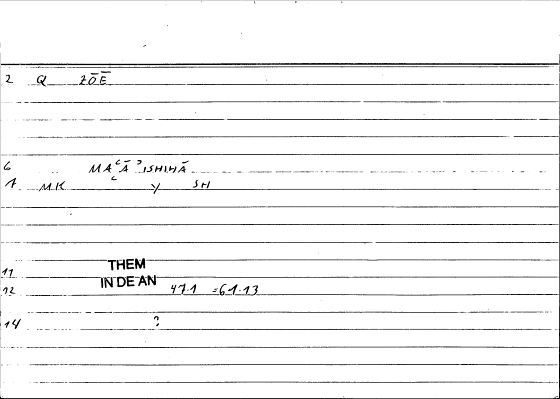 2 Q ZŌĒ
6 MAʿĀʾISHIHĀ
7 MK Y SH
11 THEM
12 IN DE AN 471 =61.13
14 ?